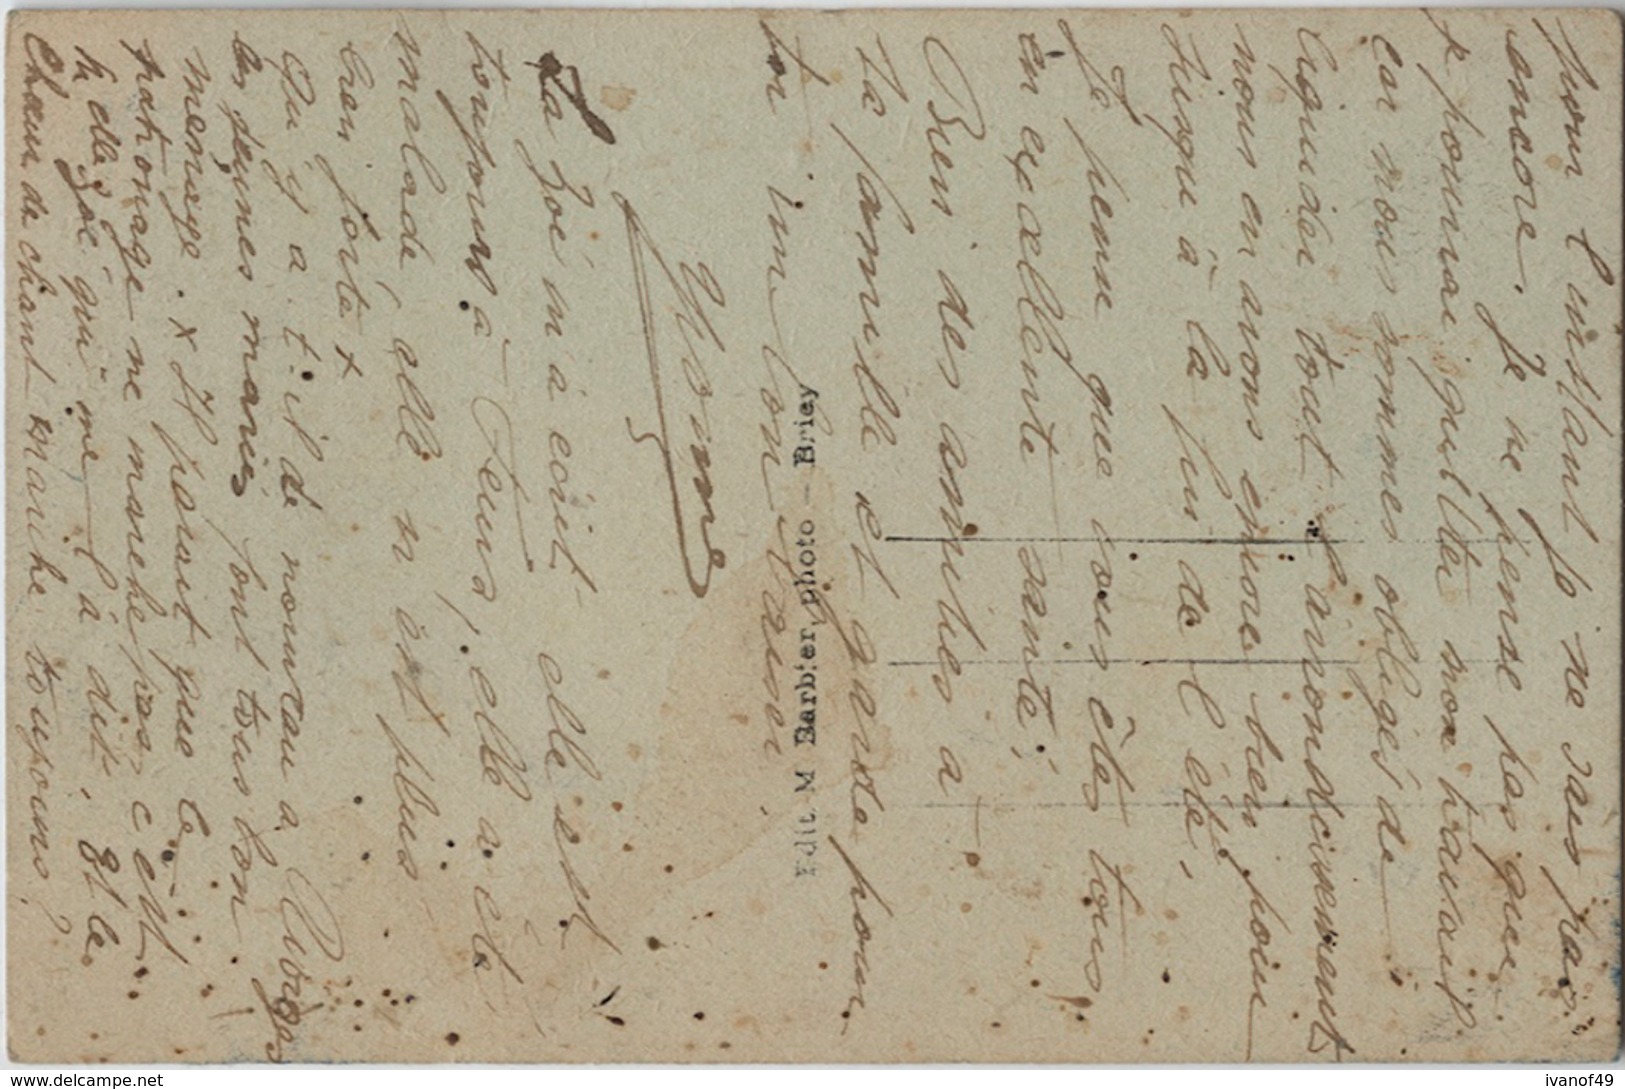 pour l'instant je ne sais pas
encore. Je ne pense pas que
je pourrai quitter mon travail
car nous sommes obligés de
liquider tout l'arrondissement
nous en avons encore bien pour
jusqu'à la fin de l'été,
Je pense que vous êtes tous
en excellente santé,
Bien des amitiés a
ta famille et garde pour
toi un bon baiser
La Zoé m'a écrit elle est
toujours a elle a été
malade, elle n'est plus
bien forte x
Qu'y a t-il de nouveau a
les jeunes mariés font tous bon
menage. x Il parait que le
patronage ne marche pas, c'est
la Zoé qui me l'a dit. Et le
Chœur de chant marche toujours?
Edit. M Barbier, photo - Briey
delcampe.net
ivanof49